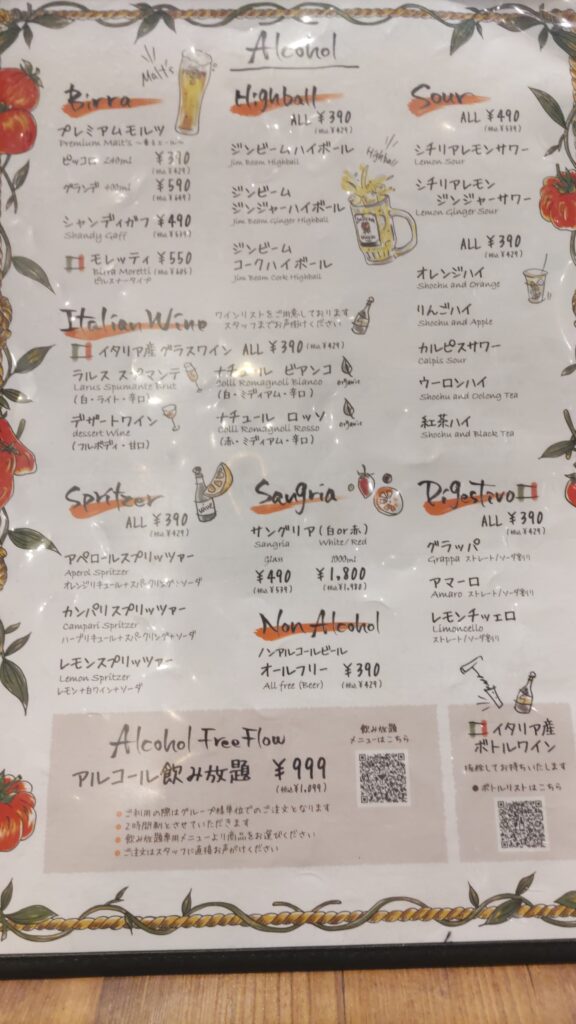 Alcohol
Malt's
Birra
プレミアムモルツ
Premium Malt's ~香るエール~
ピッコロ 240ml ¥390
(税込¥429)
グランデ 400ml ¥590
(税込¥649)
シャンディガフ ¥490
Shandy Gaff (税込¥539)
モレッティ ¥550
Birra Moretti (税込¥605)
ピルスナータイプ
Highball
ALL ¥390
(税込¥429)
ジンビームハイボール
Jim Beam Highball
Highball
ジンビーム
ジンジャーハイボール
Jim Beam Ginger Highball
ジンビーム
コークハイボール
Jim Beam Cork Highball
Sour
ALL ¥490
(税込¥539)
シチリアレモンサワー
Lemon Sour
シチリアレモン
ジンジャーサワー
Lemon Ginger Sour
ALL ¥390
(税込¥429)
オレンジハイ
Shochu and Orange
りんごハイ
Shochu and Apple
カルピスサワー
Calpis Sour
ウーロンハイ
Shochu and Oolong Tea
紅茶ハイ
Shochu and Black Tea
Italian Wine
ワインリストをご用意しております
スタッフまでお声掛けください
イタリア産グラスワイン ALL ¥390(税込¥429)
ラルス スプマンテ
Larus Spumante Brut
(白・ライト・辛口)
デザートワイン
dessert Wine
(フルボディ・甘口)
ナチュール ビアンコ
Colli Romagnoli Bianco
organic
(白・ミディアム・辛口)
ナチュール ロッソ
Colli Romagnoli Rosso
organic
(赤・ミディアム・辛口)
Spritzer
ALL ¥390
(税込¥429)
アペロールスプリッツァー
Aperol Spritzer
オレンジリキュール+スパークリング+ソーダ
カンパリスプリッツァー
Campari Spritzer
ハーブリキュール+スパークリング+ソーダ
レモンスプリッツァー
Lemon Spritzer
レモン+白ワイン+ソーダ
Sangria
サングリア(白or赤)
Sangria White/Red
Glass 1000ml
¥490 ¥1,800
(税込¥539) (税込¥1,980)
Non Alcohol
ノンアルコールビール
オールフリー ¥390
All free (Beer) (税込¥429)
Digestivo
ALL ¥390
(税込¥429)
グラッパ
Grappa ストレート/ソーダ割り
アマーロ
Amaro ストレート/ソーダ割り
レモンチェロ
Limoncello
ストレート/ソーダ割り
Alcohol Free Flow
アルコール飲み放題 ¥999
(税込¥1,099)
飲み放題
メニューはこちら
● ご利用の際はグループ様単位でのご注文となります
● 2時間制とさせていただきます
● 飲み放題専用メニューより商品をお選びください
● ご注文はスタッフに直接お声がけください
イタリア産
ボトルワイン
抜栓してお持ちいたします
● ボトルリストはこちら